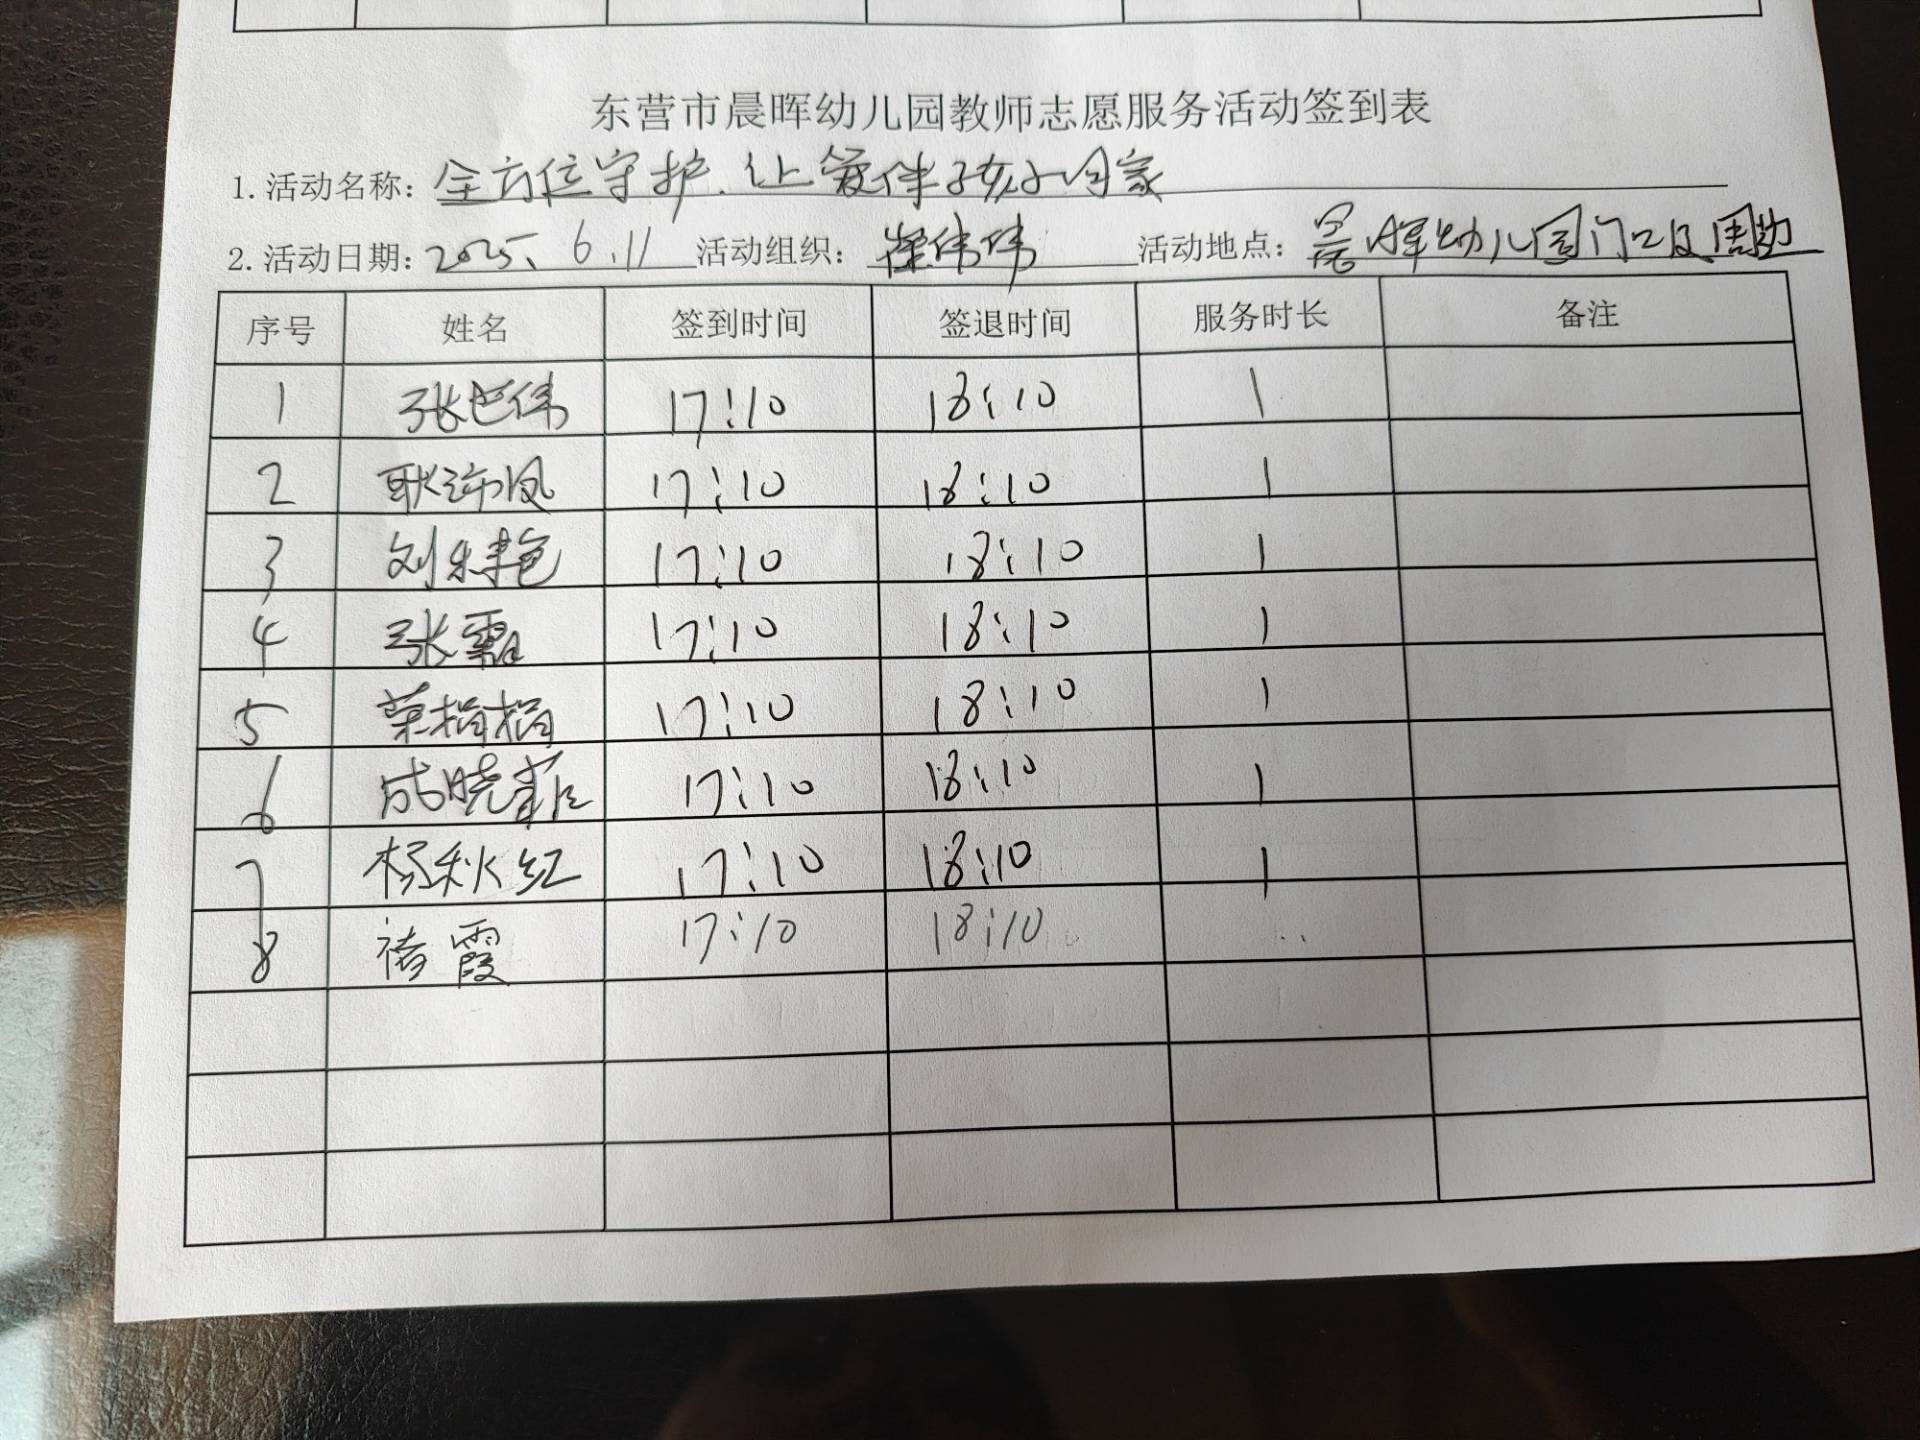 东营市晨晖幼儿园教师志愿服务活动签到表
1.活动名称：全方位守护.让爱伴孩子回家
2.活动日期：2025.6.11 活动组织：崔伟伟 活动地点：晨晖幼儿园门口及周边
序号 姓名 签到时间 签退时间 服务时长 备注
1 张芭伟 17:10 18:10 1
2 耿沛凤 17:10 18:10 1
3 刘艳 17:10 18:10 1
4 张霜 17:10 18:10 1
5 娟娟 17:10 18:10 1
6 成晓菲 17:10 18:10 1
7 杨秋红 17:10 18:10 1
8 褚霞 17:10 18:10